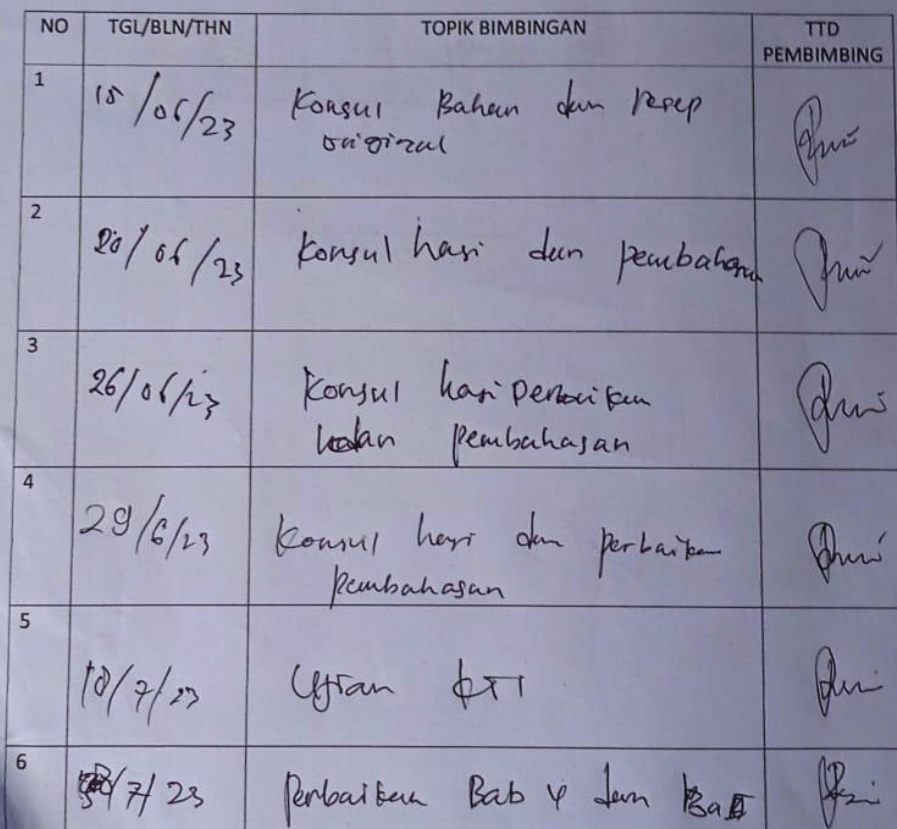 NO TGL/BLN/THN TOPIK BIMBINGAN TTD
PEMBIMBING
1 15/06/23 Konsul Bahan dan resep
original
2 20/06/23 Konsul hasi dan pembahasan
3 26/06/23 Konsul hasi perbaikan
pembahasan
4 29/6/23 Konsul hasi dan perbaikan
pembahasan
5 18/7/23 Ujian KTI
6 /7/23 Perbaikan Bab 4 dan